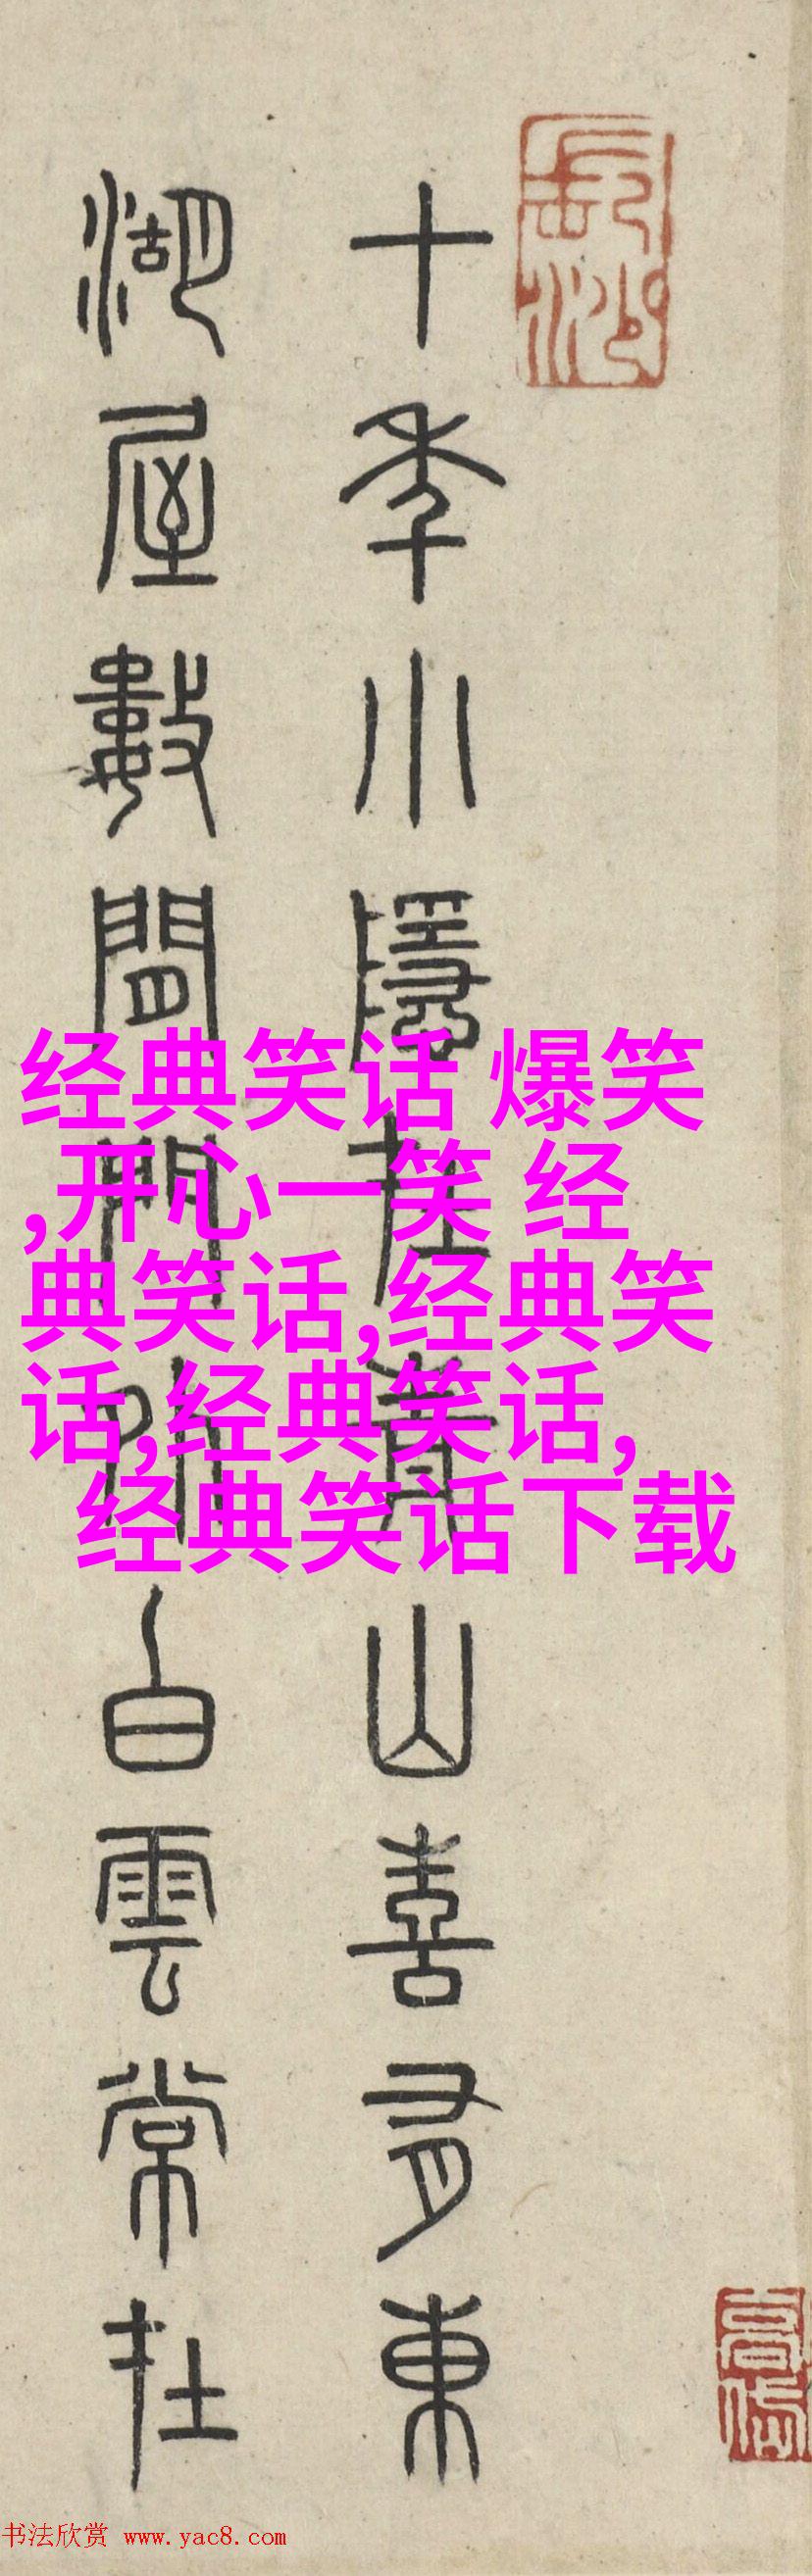 十年小隱在青山喜有東
湖屋數間門外白雲常在
经典笑话 爆笑
,开心一笑 经
典笑话,经典笑
话,经典笑话,
经典笑话下载
书法欣赏 www.yac8.com